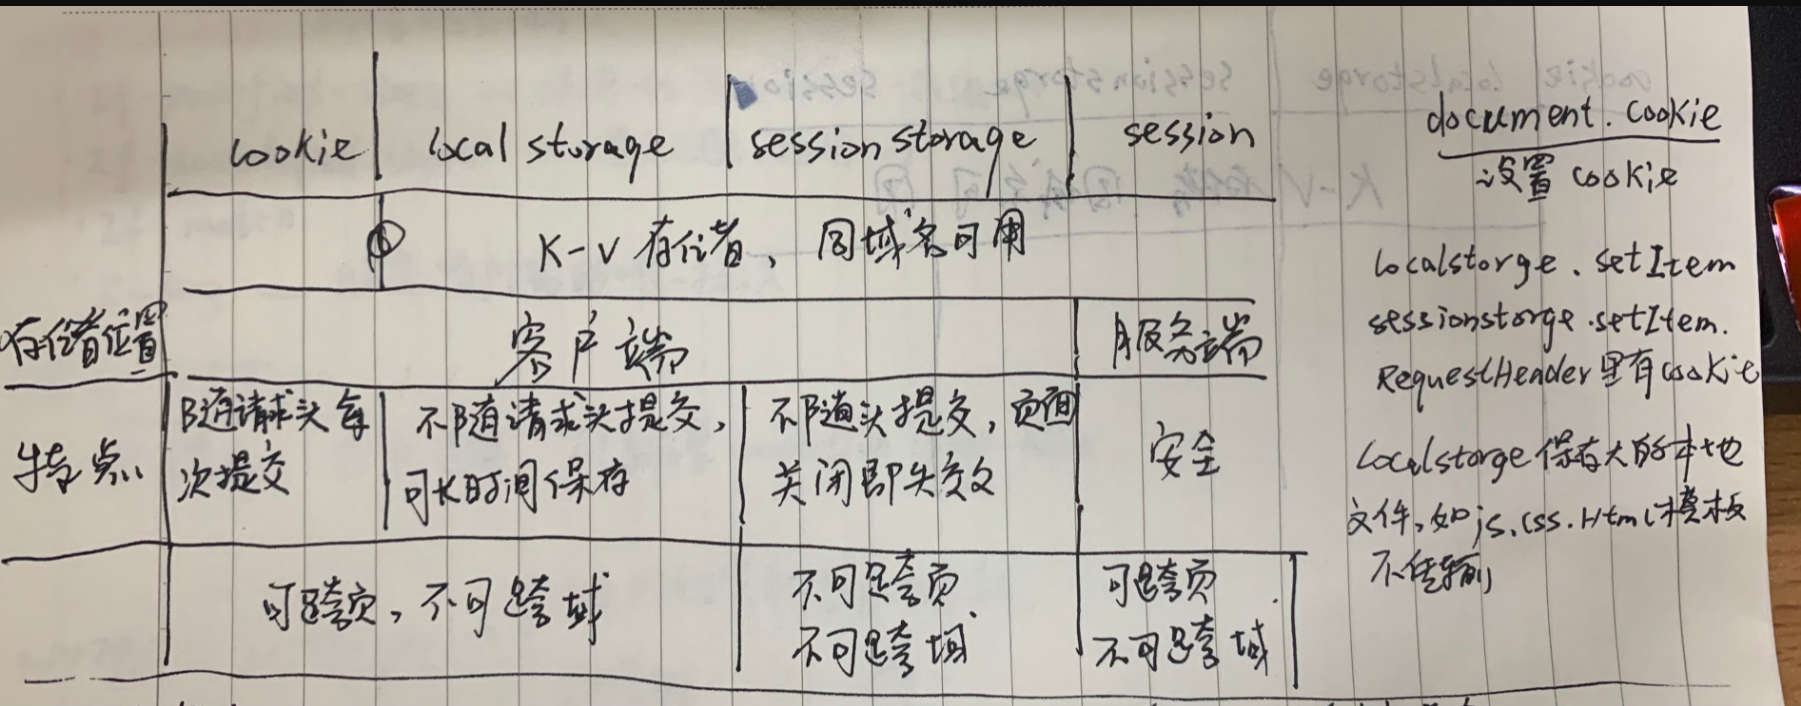 cookie local storage session storage session
K-V 存储, 同域名可用
存储位置 客户端 服务端
特点
随请求头每
次提交
不随请求头提交,
可长时间保存
不随头提交, 页面
关闭即失效
安全
可跨页, 不可跨域
不可跨页
不可跨域
可跨页
不可跨域
document. cookie
设置 cookie
localstorge. setItem
sessionstorge.setItem.
RequestHeader里有cookie
Localstorge保存大的本地
文件,如js.css.Html模板
不传输